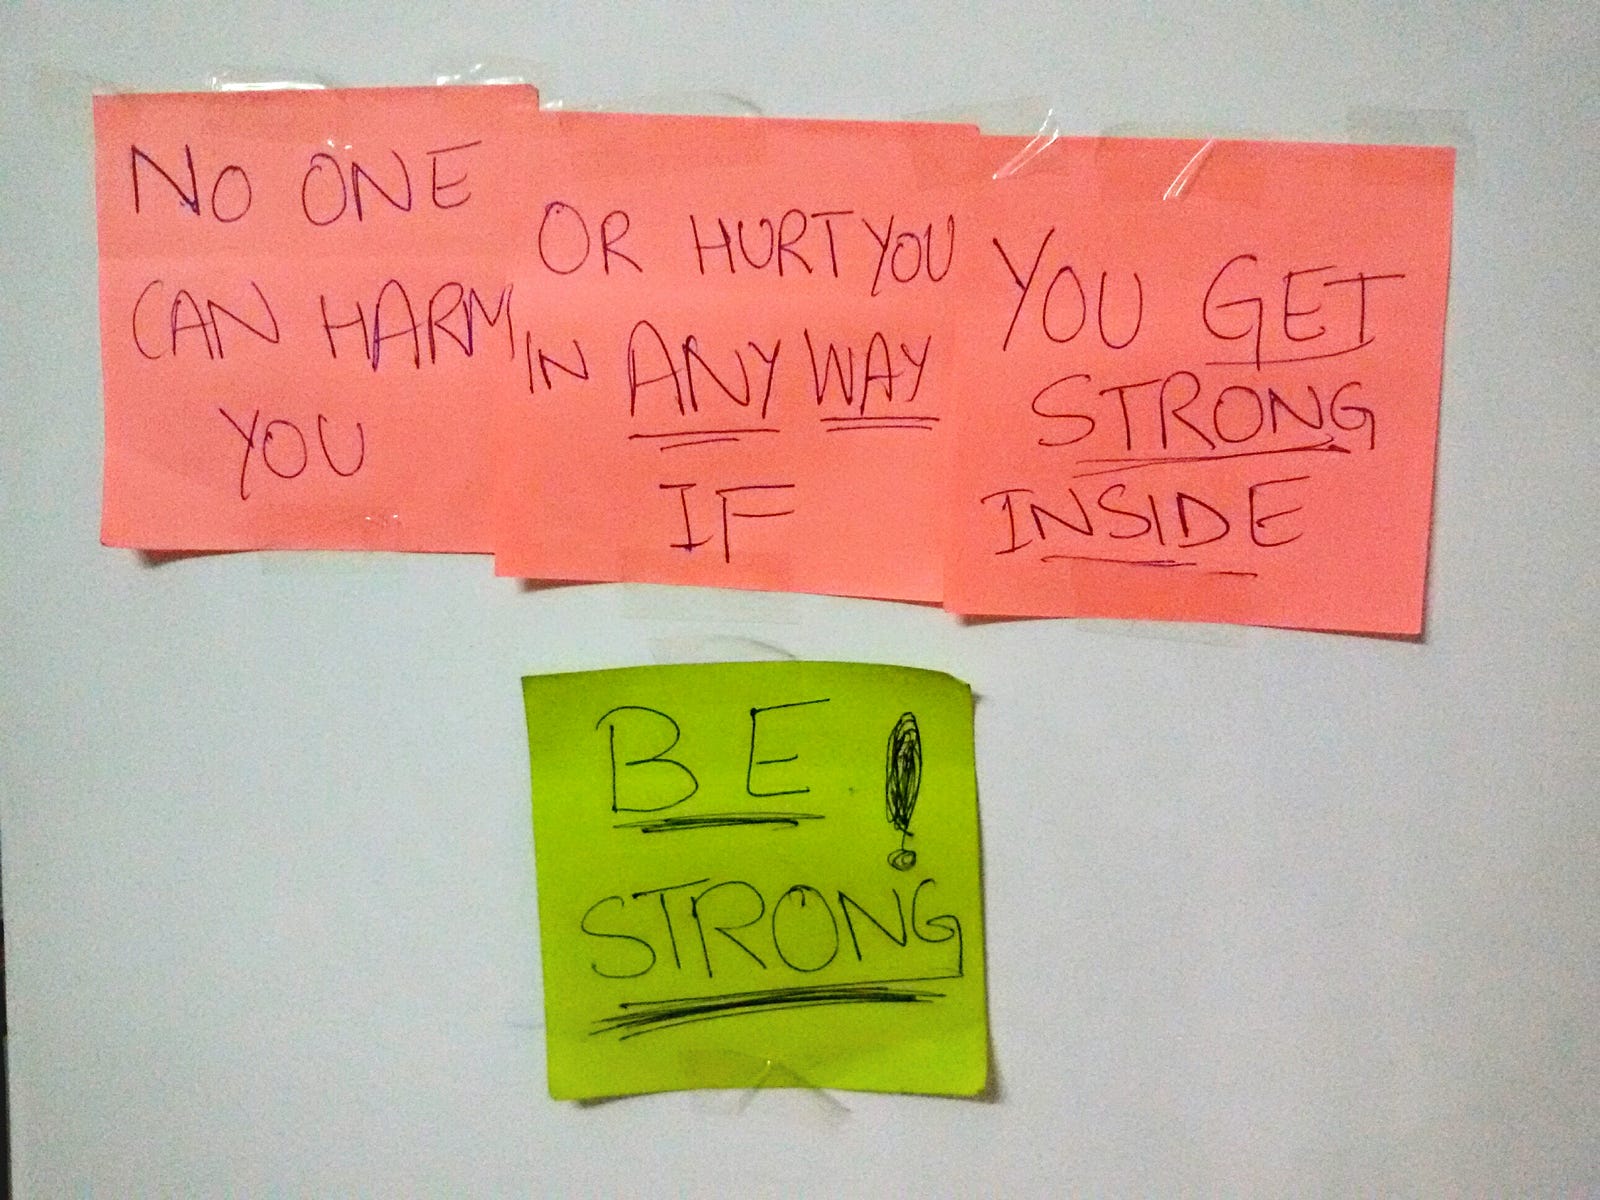 NO ONE
CAN HARM
YOU
OR HURT YOU
IN ANY WAY
IF
YOU GET
STRONG
INSIDE
BE !
STRONG